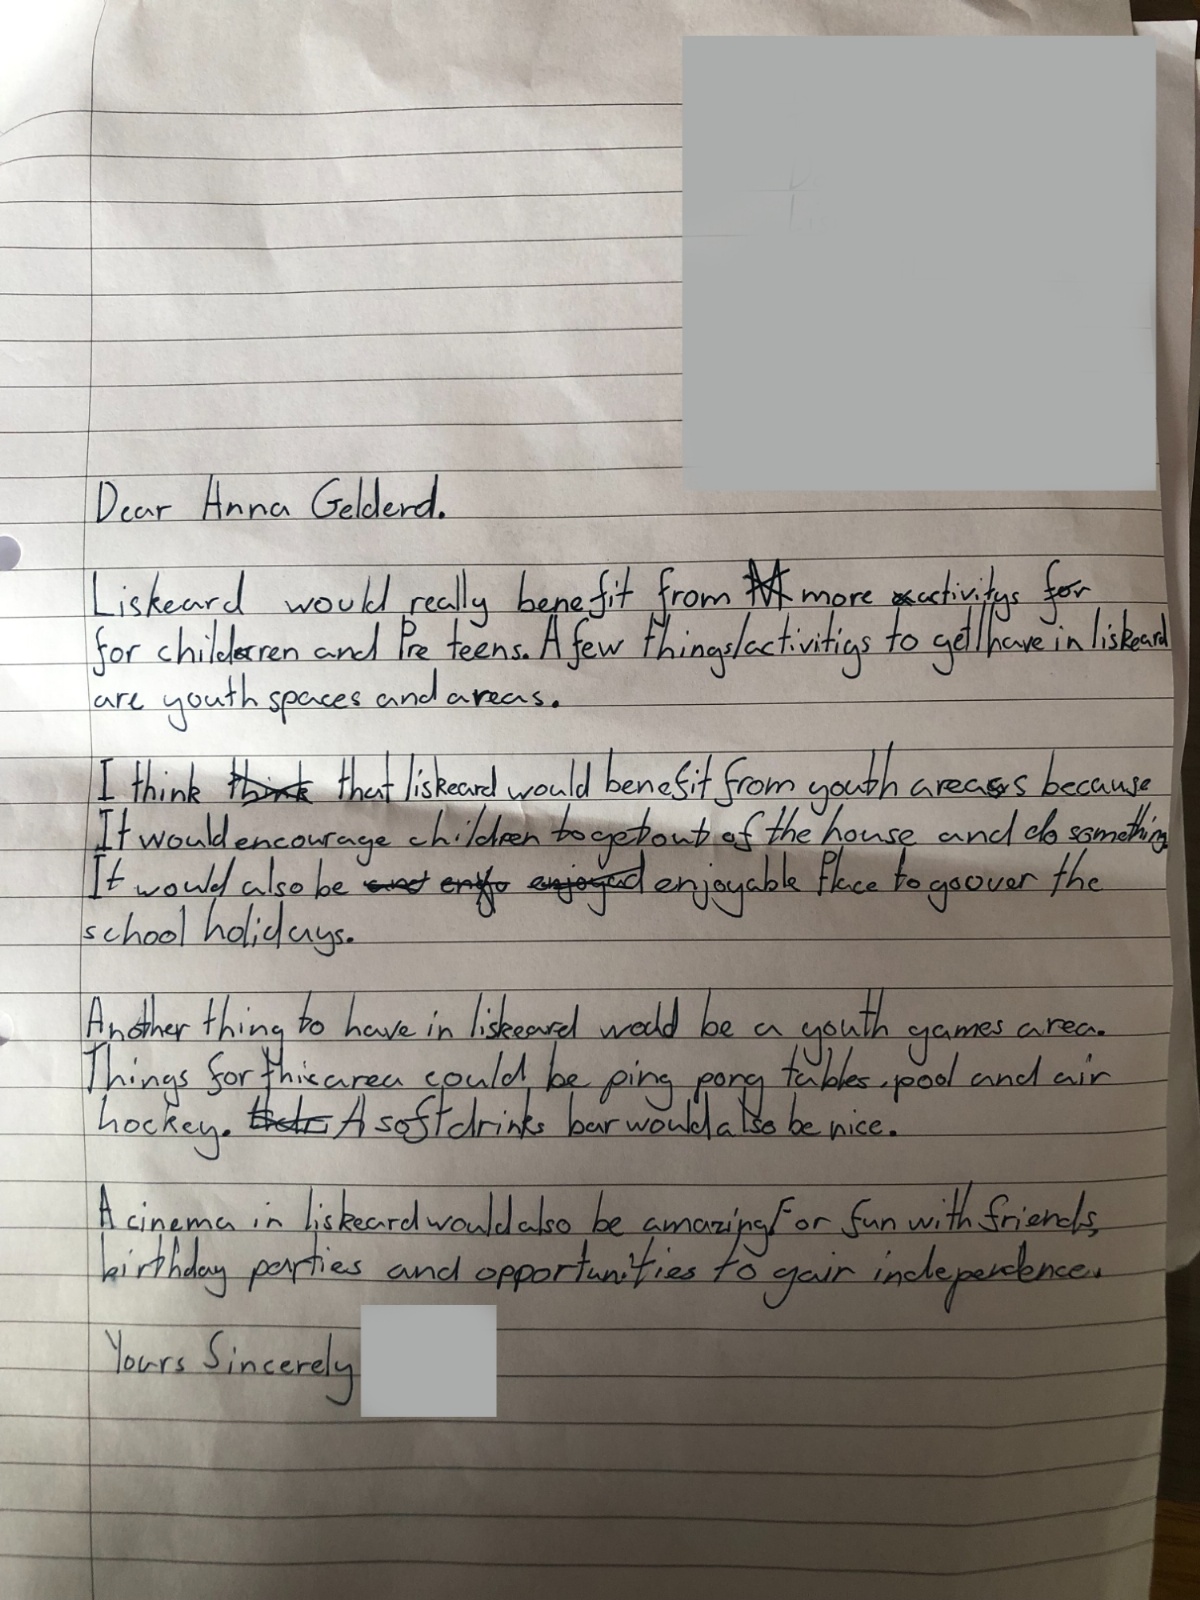 Dear Anna Gelderd.
Liskeard would really benefit from more activitys for
for children and Pre teens. A few things/activitigs to get/have in liskeard
are youth spaces and areas.
I think think that liskeard would benefit from youth areas because
It would encourage children to get out of the house and do something
It would also be and enjo enjoyed enjoyable Place to go over the
school holidays.
Another thing to have in liskeard would be a youth games area.
Things for this area could be ping pong tables, pool and air
hockey. A soft drinks bar would also be nice.
A cinema in liskeard would also be amazing For fun with friends,
birthday parties and opportunities to gain independence.
Yours Sincerely